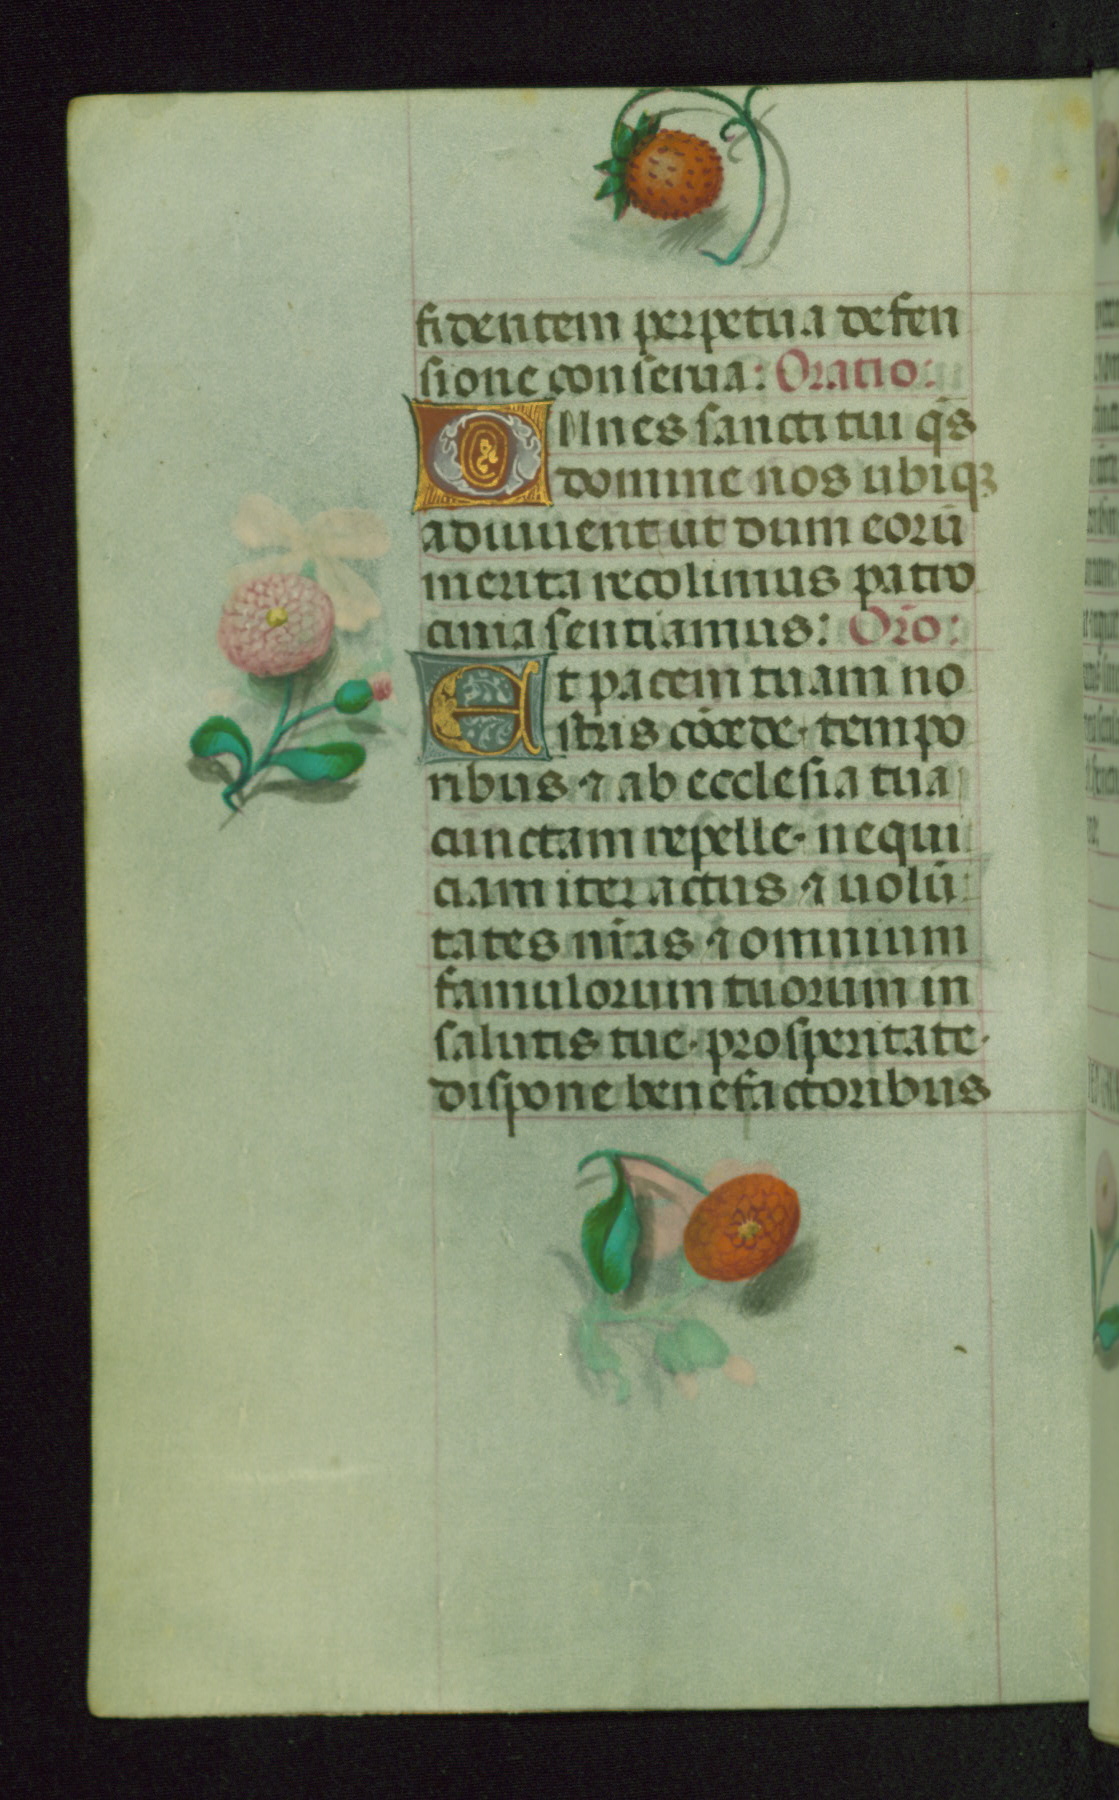 fidentem perpetua defen
sione conserua: Oratio:
OMnes sancti tui q̄s
domine nos ubiqꝫ
adiuuent ut dum eorū
merita recolimus patro
cinia sentiamus: Orõ:
Et pacem tuam no
stris cōcede· tempo
ribus ⁊ ab ecclesia tua
cunctam repelle· nequi
ciam iter actus ⁊ uolū
tates nr̄as ⁊ omnium
famulorum tuorum in
salutis tue· prosperitate·
dispone benefactoribus